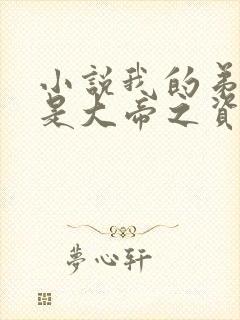 小說我的弟
是大帝之資
夢心軒